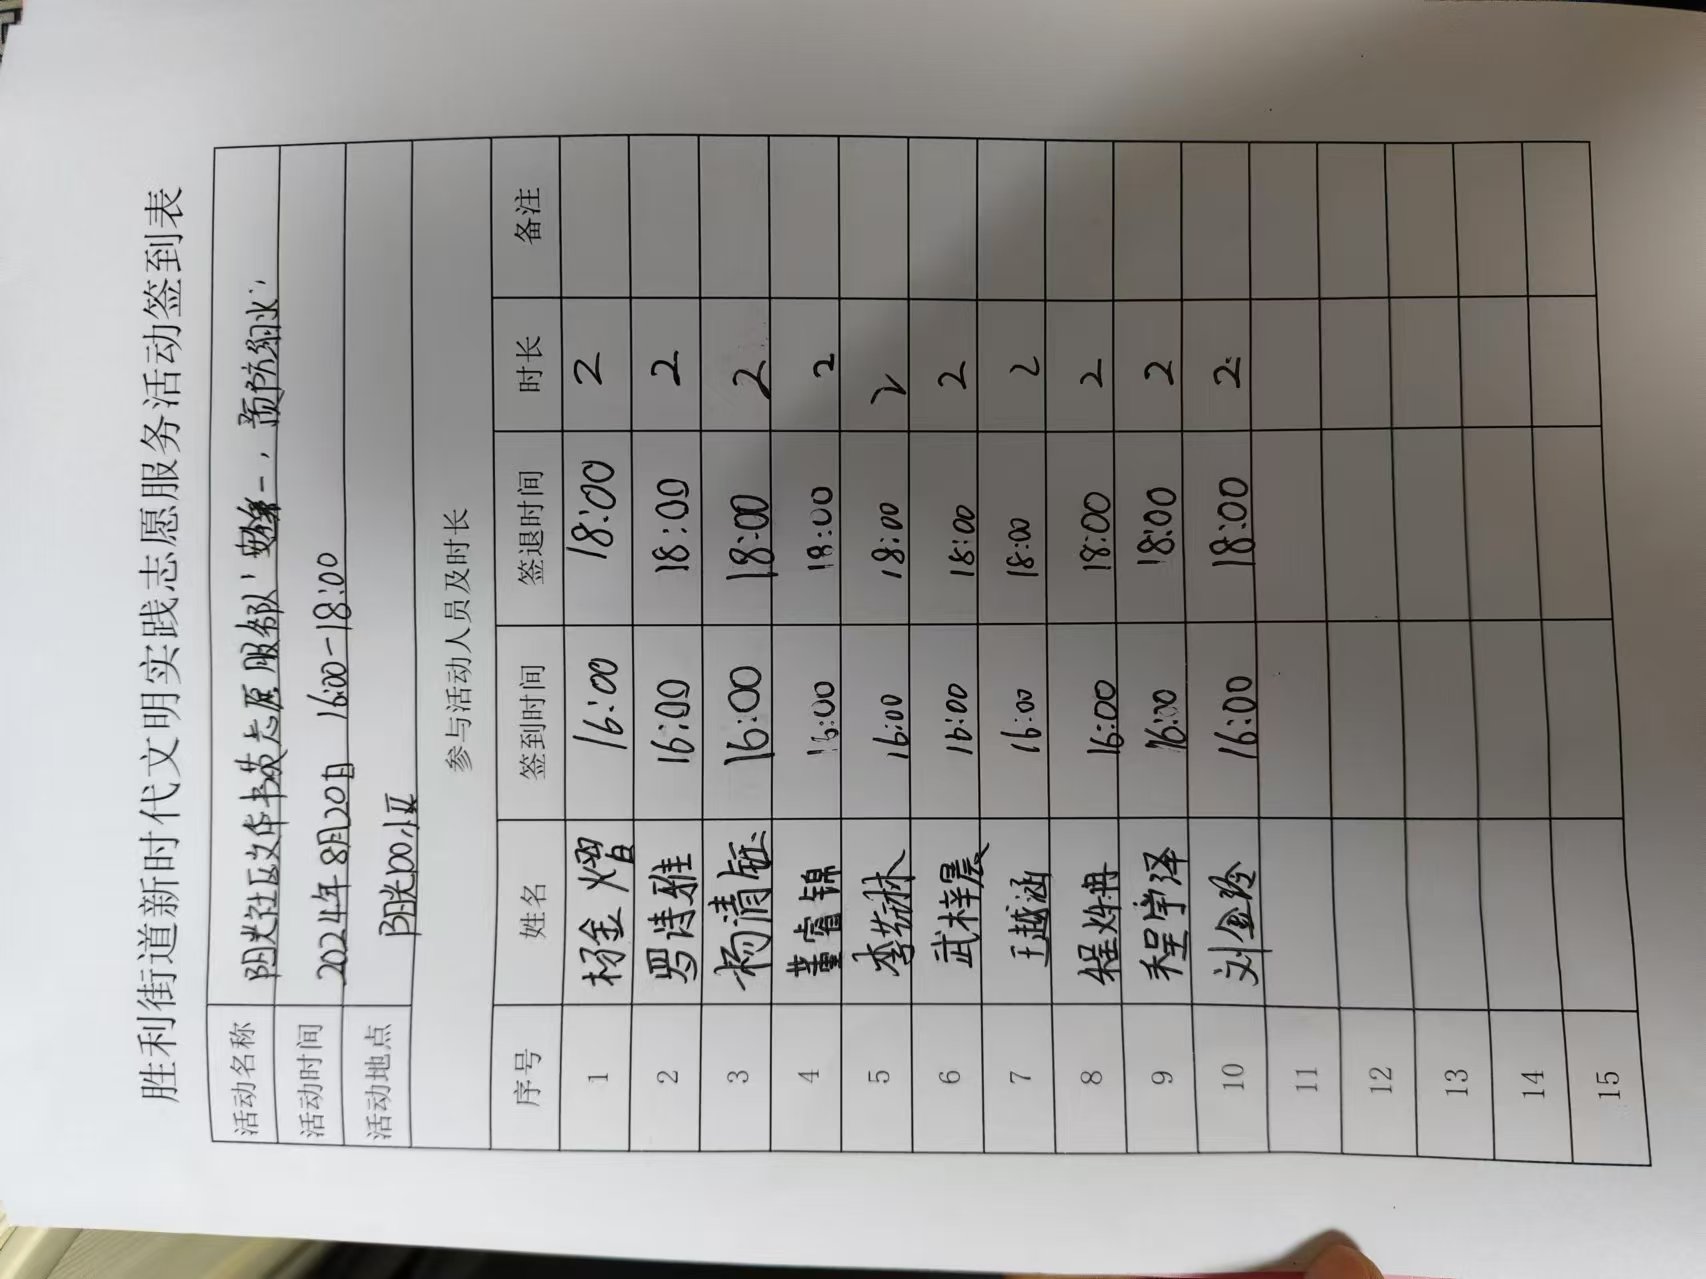 胜利街道新时代文明实践志愿服务活动签到表
活动名称 阳光社区文体书英志愿服务队"安全第一，预防溺水"
活动时间 2024年8月20日 16:00-18:00
活动地点 阳光100小区
参与活动人员及时长
序号 姓名 签到时间 签退时间 时长 备注
1 杨金熠 16:00 18:00 2
2 罗诗雅 16:00 18:00 2
3 杨清钰 16:00 18:00 2
4 董睿锦 16:00 18:00 2
5 李林 16:00 18:00 2
6 武梓晨 16:00 18:00 2
7 王越涵 16:00 18:00 2
8 程烨冉 16:00 18:00 2
9 程宇泽 16:00 18:00 2
10 刘金玲 16:00 18:00 2
11
12
13
14
15